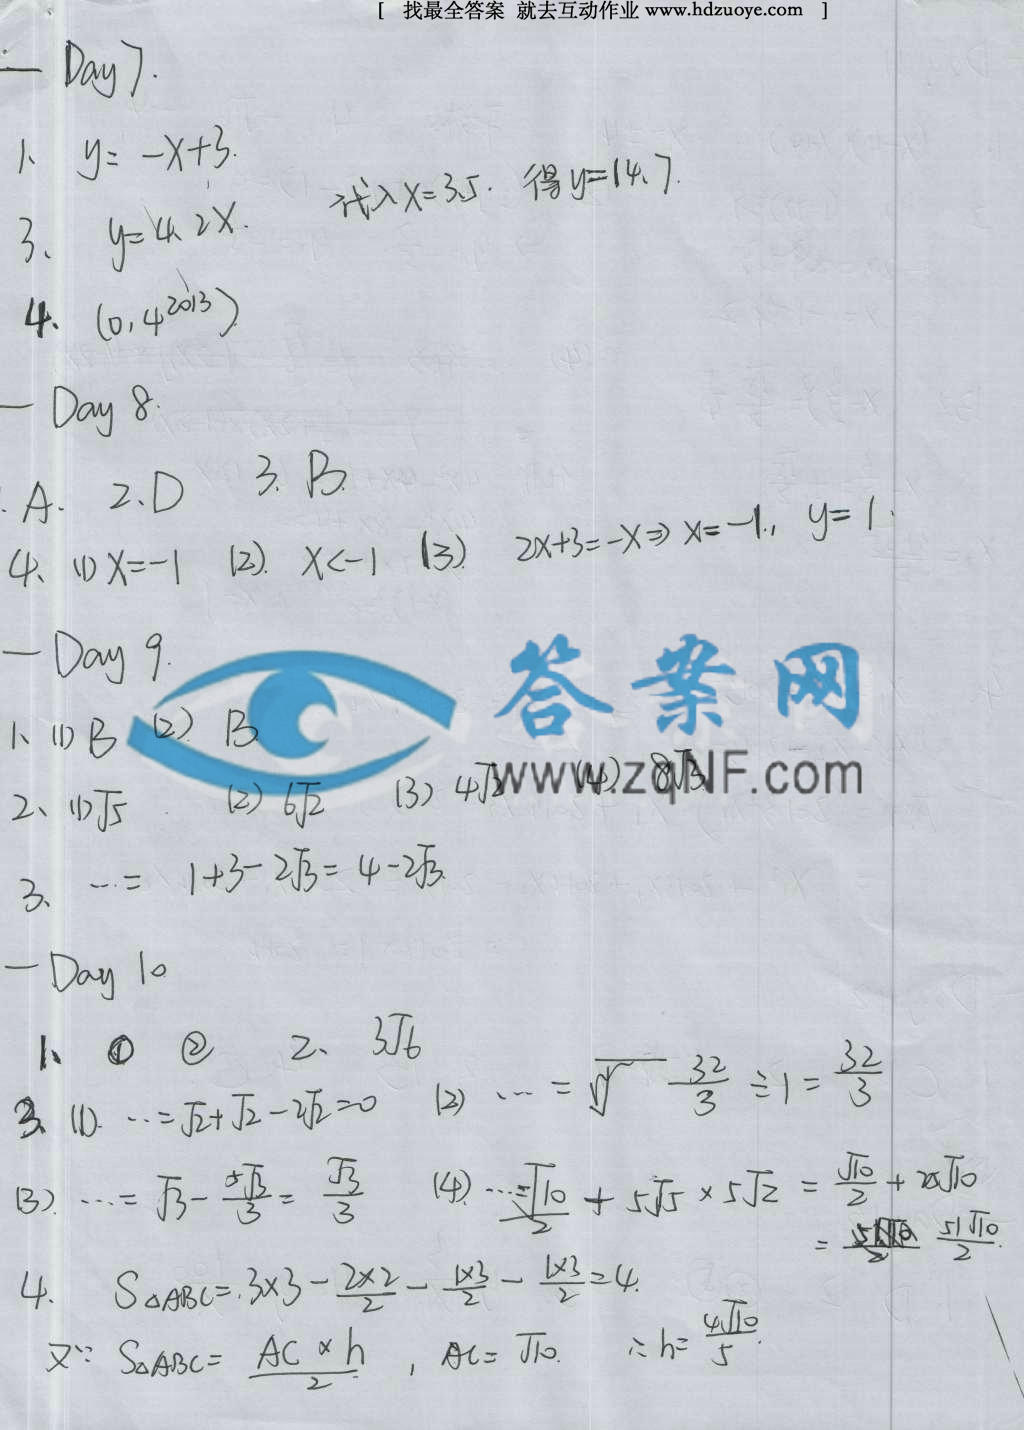 [ 找最全答案 就去互动作业 www.hdzuoye.com ]
一 Day 7.
1、 y= -x+3.
3、 y=4.2x. 代入x=3.5. 得y=14.7.
4、 (0, 4^2013)
一 Day 8.
. A. 2、D 3. B.
4、 (1) x=-1 (2). x<-1 (3). 2x+3=-x⇒x=-1., y=1.
一 Day 9.
答案网
1、 (1) B (2). B.
www.zqNF.com
2、 (1)√5 (2) 6√2 (3) 4√2 (4). 8√3.
3、 …= 1+3-2√3=4-2√3.
一 Day 10
1、 ① ② 2、 3√6
3、 (1). …=√2+√2-2√2=0 (2) …= 32/3 ÷1= 32/3
(3). …=√3- /3=√3/3 (4). …=√10/2+5√5×5√2=√10/2+ √10
= 51√10/2.
4. S△ABC=.3×3-2×2/2-1×3/2-1×3/2=4.
又∵ S△ABC= AC×h/2 , AC=√10. ∴h=4√10/5.